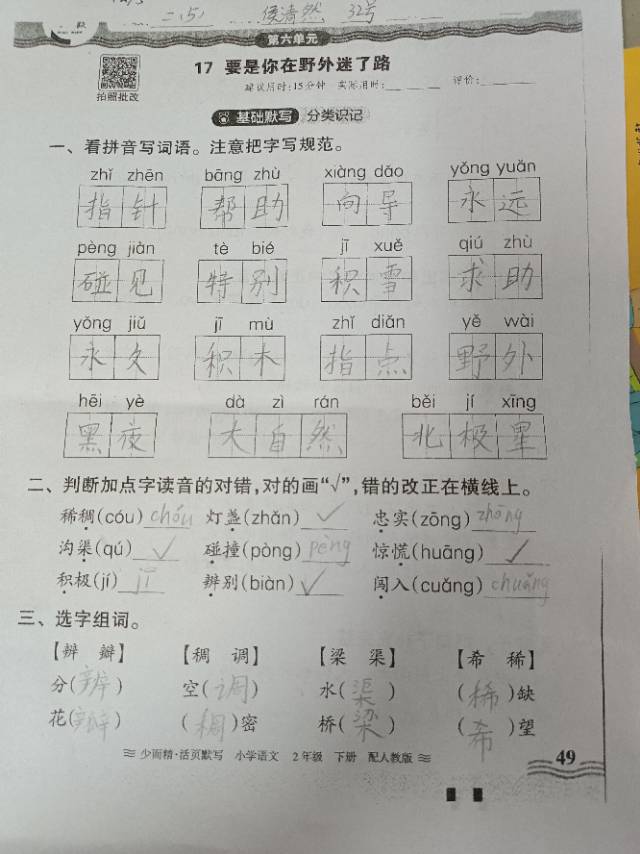 二(5) 侯清然 32号
第六单元
拍照批改
17 要是你在野外迷了路
建议用时:15分钟 实际用时: 评价:
基础默写 分类识记
一、看拼音写词语。注意把字写规范。
zhǐ zhēn bāng zhù xiàng dǎo yǒng yuǎn
指针 帮助 向导 永远
pèng jiàn tè bié jī xuě qiú zhù
碰见 特别 积雪 求助
yǒng jiǔ jī mù zhǐ diǎn yě wài
永久 积木 指点 野外
hēi yè dà zì rán běi jí xīng
黑夜 大自然 北极星
二、判断加点字读音的对错,对的画“√”,错的改正在横线上。
稀稠(cóu) chóu 灯盏(zhǎn) √ 忠实(zōng) zhōng
沟渠(qú) √ 碰撞(pòng) pèng 惊慌(huāng) √
积极(jí) jī 辨别(biàn) √ 闯入(cuǎng) chuǎng
三、选字组词。
【辨 瓣】 【稠 调】 【梁 渠】 【希 稀】
分(辨) 空(调) 水(渠) (稀)缺
花(瓣) (稠)密 桥(梁) (希)望
少而精·活页默写 小学语文 2年级 下册 配人教版
49